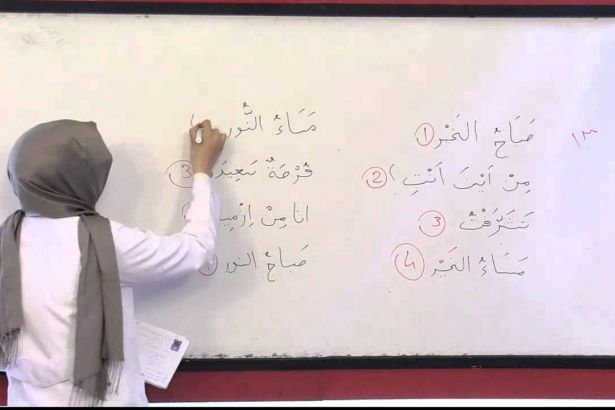 صَبَاحُ الخَيْر ①
مِنْ اَيْنَ اَنْتِ ②
تَشَرَّفْتُ ③
مَسَاءُ الخَيْر ④
مَسَاءُ النُّور
فُرْصَةٌ سَعِيدَة ③
انا مِنْ اِزْمِي
صَباحُ النور